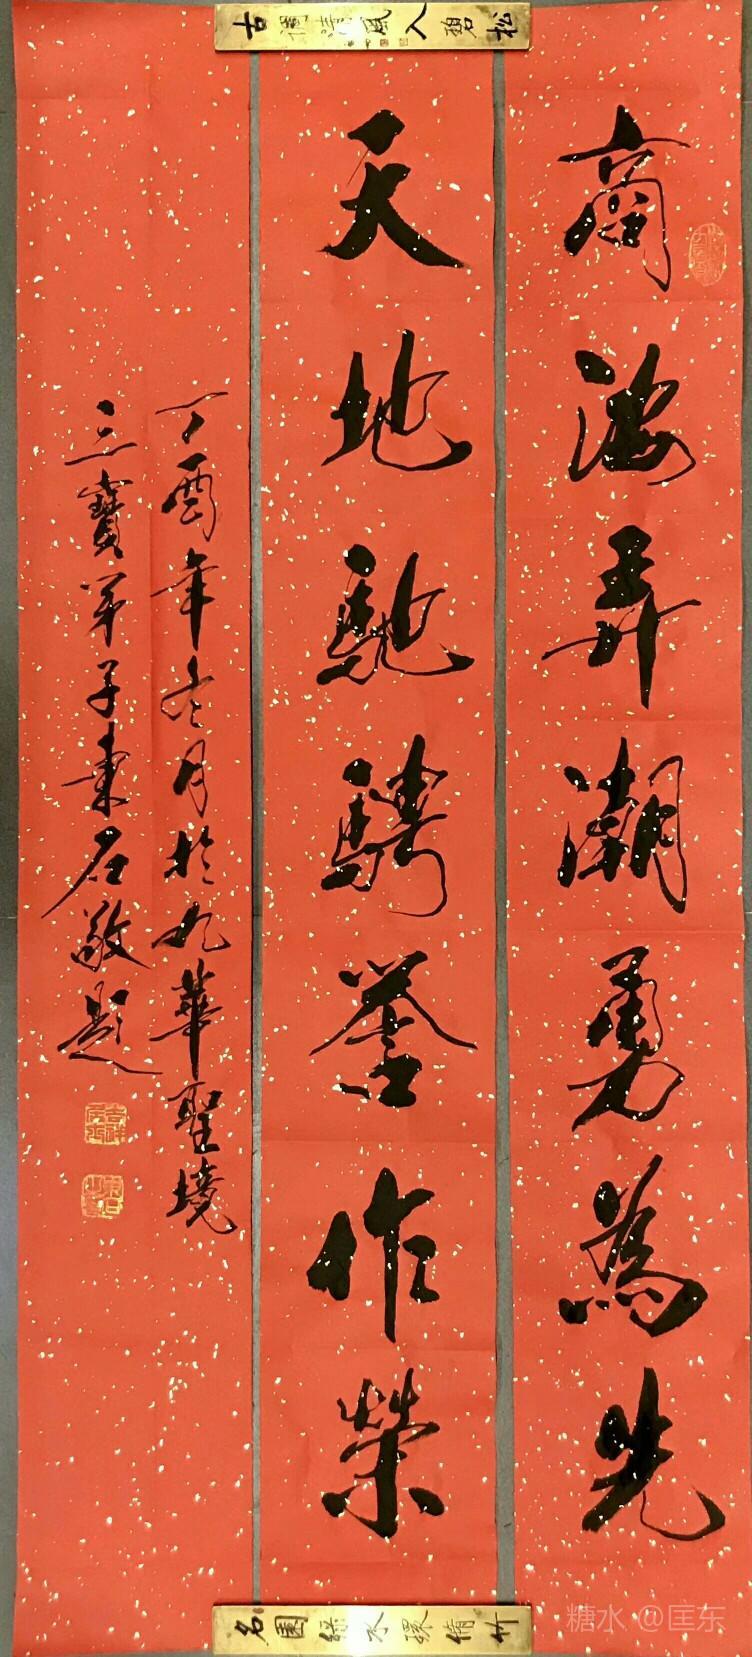 商海弄潮勇為先
天地馳騁誉作榮
丁酉年冬月於九華聖境
三寶弟子東石敬題
古調清風入碧松
名園綠水環脩竹
糖水 @匡东